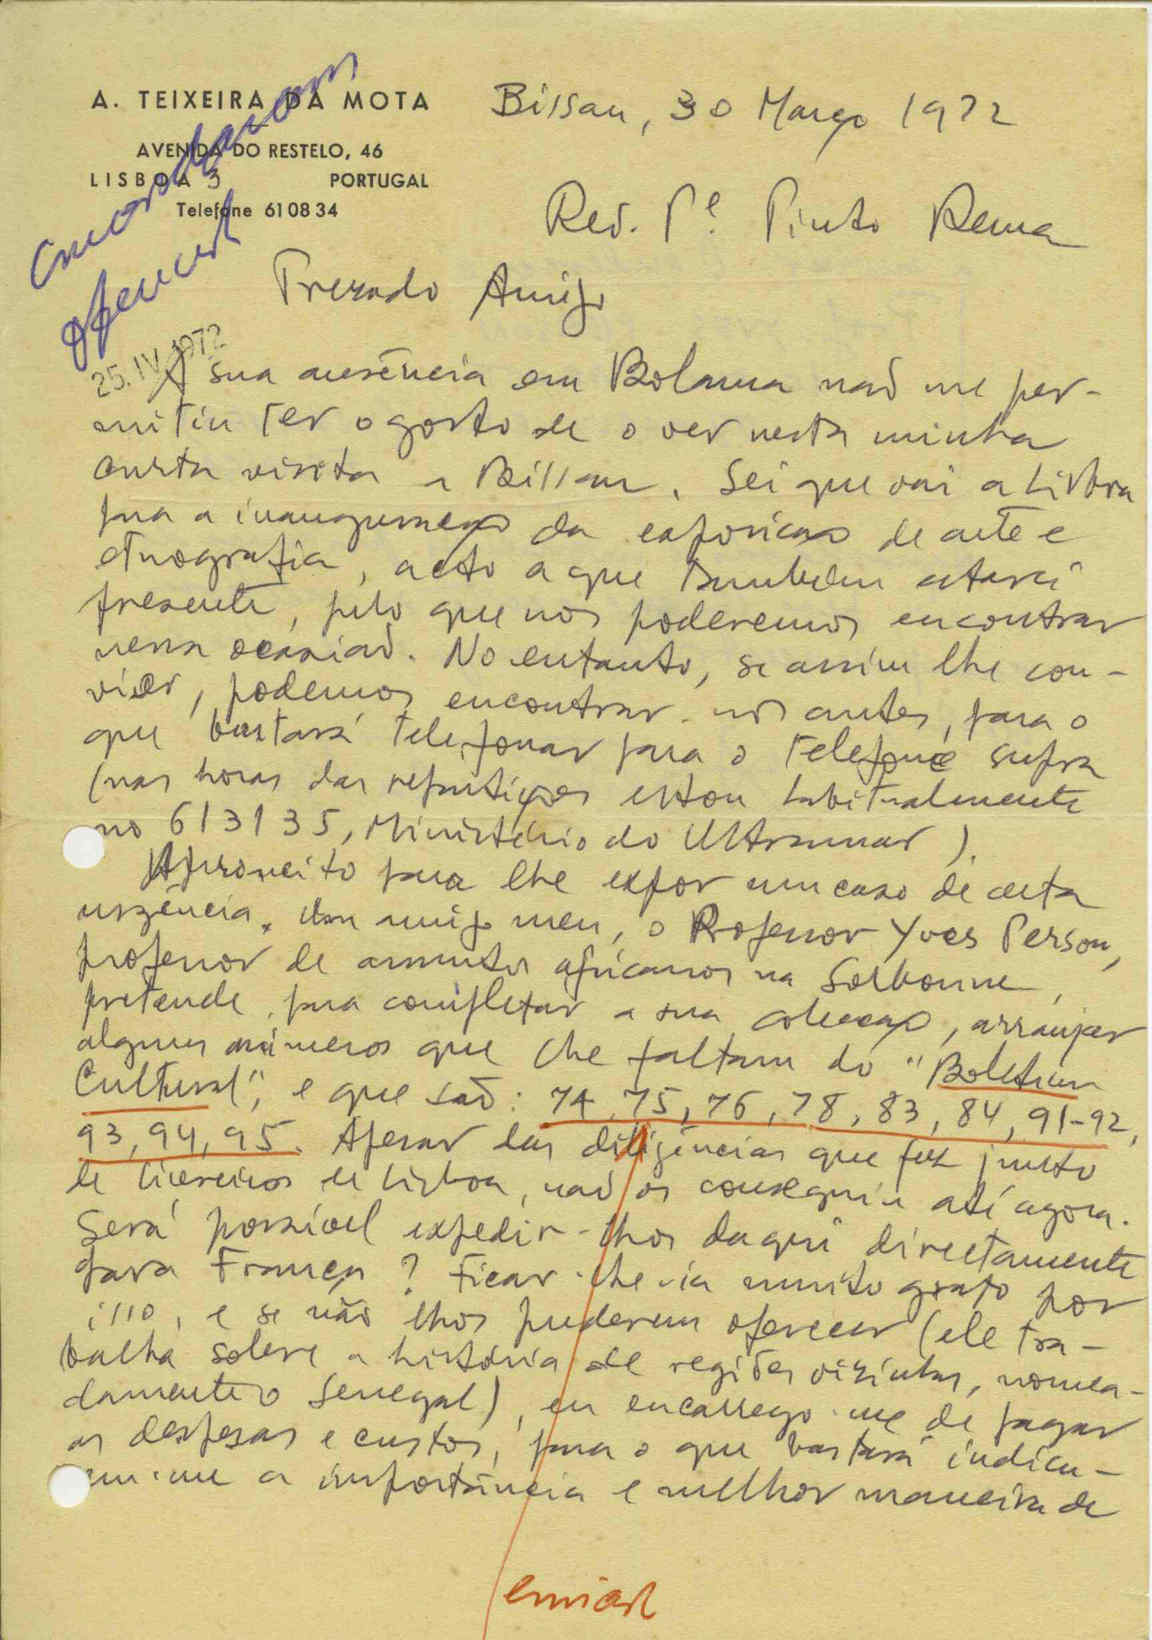 A. TEIXEIRA DA MOTA
AVENIDA DO RESTELO, 46
LISBOA 3 PORTUGAL
Telefone 610834
Bissau, 30 Março 1972
Rev. Pe. Pinto Rema
Prezado Amigo
25.IV.1972
A sua ausência em Bolama não me per-
mitiu ter o gosto de o ver nesta minha
curta visita a Bissau. Sei que vai a Lisboa
para a inauguração da exposição de arte e
etnografia, acto a que também estarei
presente, pelo que nos poderemos encontrar
nessa ocasião. No entanto, se assim lhe con-
vier, podemos encontrar-nos antes, para o
que bastará telefonar para o telefone supra
(nas horas das repartições estou habitualmente
no 613135, Ministério do Ultramar).
Aproveito para lhe expor um caso de certa
urgência. Um amigo meu, o Professor Yves Person,
professor de assuntos africanos na Sorbonne,
pretende, para completar a sua colecção, arranjar
alguns números que lhe faltam do "Boletim
Cultural", e que são: 74, 75, 76, 78, 83, 84, 91-92,
93, 94, 95. Apesar das diligências que fez junto
de livreiros de Lisboa, não os conseguiu até agora.
Será possível expedir-lhos daqui directamente
para França? Ficar-lhe-ia muito grato por
isso, e se não lhos puderem oferecer (ele tra-
balha sobre a história de regiões vizinhas, nomea-
damente o Senegal), eu encarrego-me de pagar
as despesas e custos, para o que bastará indica-
rem-me a importância e melhor maneira de
enviar